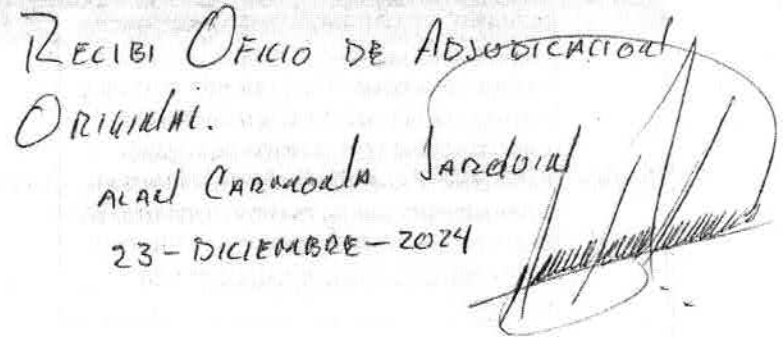 RECIBI OFICIO DE ADJUDICACION
ORIGINAL.
ALAN CARMONA
23-DICIEMBRE-2024